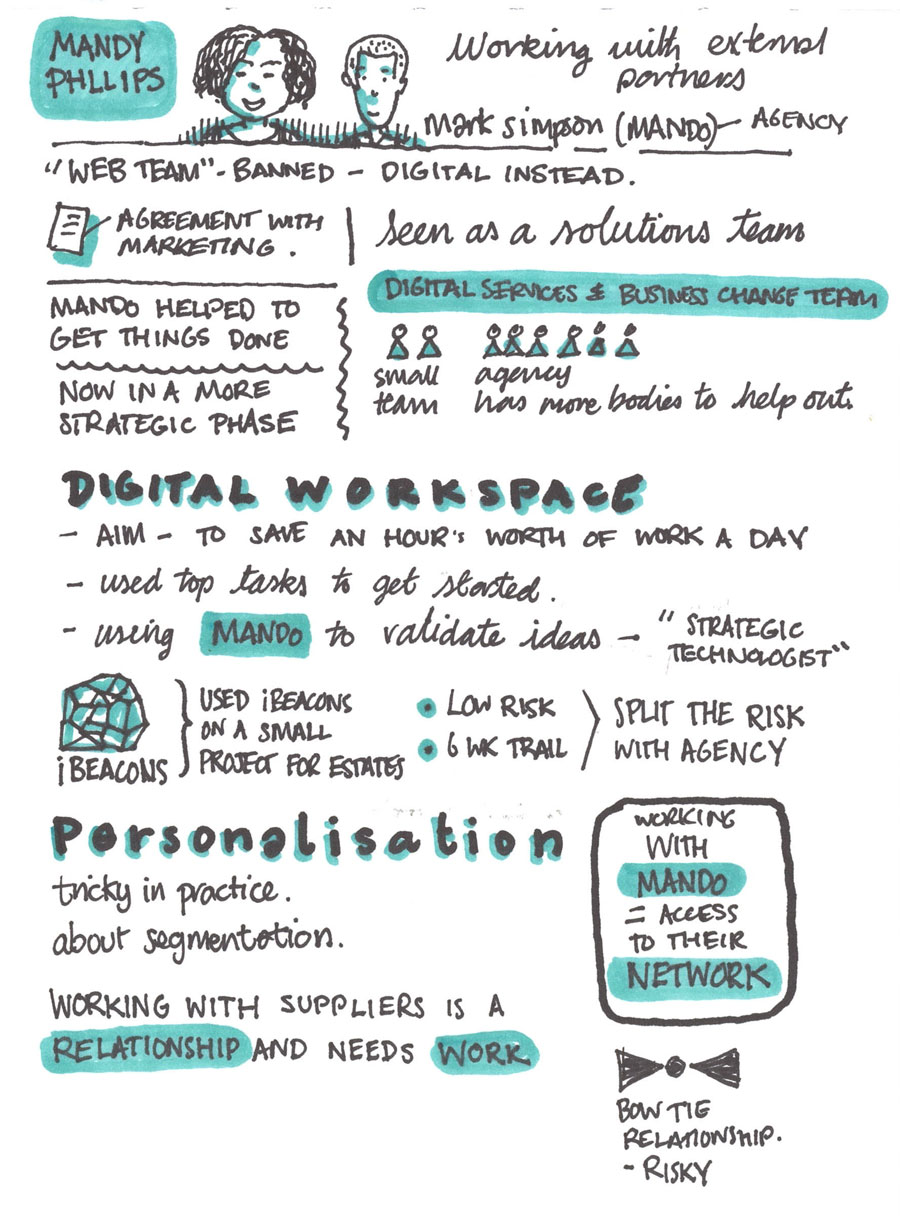 MANDY
PHLLIPS
Working with external
partners
Mark Simpson (MANDO) - AGENCY
"WEB TEAM" - BANNED - DIGITAL INSTEAD.
AGREEMENT WITH
MARKETING.
Seen as a solutions team
DIGITAL SERVICES & BUSINESS CHANGE TEAM
MANDO HELPED TO
GET THINGS DONE
NOW IN A MORE
STRATEGIC PHASE
small
team
agency
has more bodies to help out.
DIGITAL WORKSPACE
- AIM - TO SAVE AN HOUR'S WORTH OF WORK A DAY
- used top tasks to get started.
- using MANDO to validate ideas - "STRATEGIC
TECHNOLOGIST"
iBEACONS
USED iBEACONS
ON A SMALL
PROJECT FOR ESTATES
• LOW RISK
• 6 WK TRAIL
SPLIT THE RISK
WITH AGENCY
Personalisation
tricky in practice.
about segmentation.
WORKING WITH SUPPLIERS IS A
RELATIONSHIP AND NEEDS WORK
WORKING
WITH
MANDO
= ACCESS
TO THEIR
NETWORK
BOW TIE
RELATIONSHIP.
- RISKY